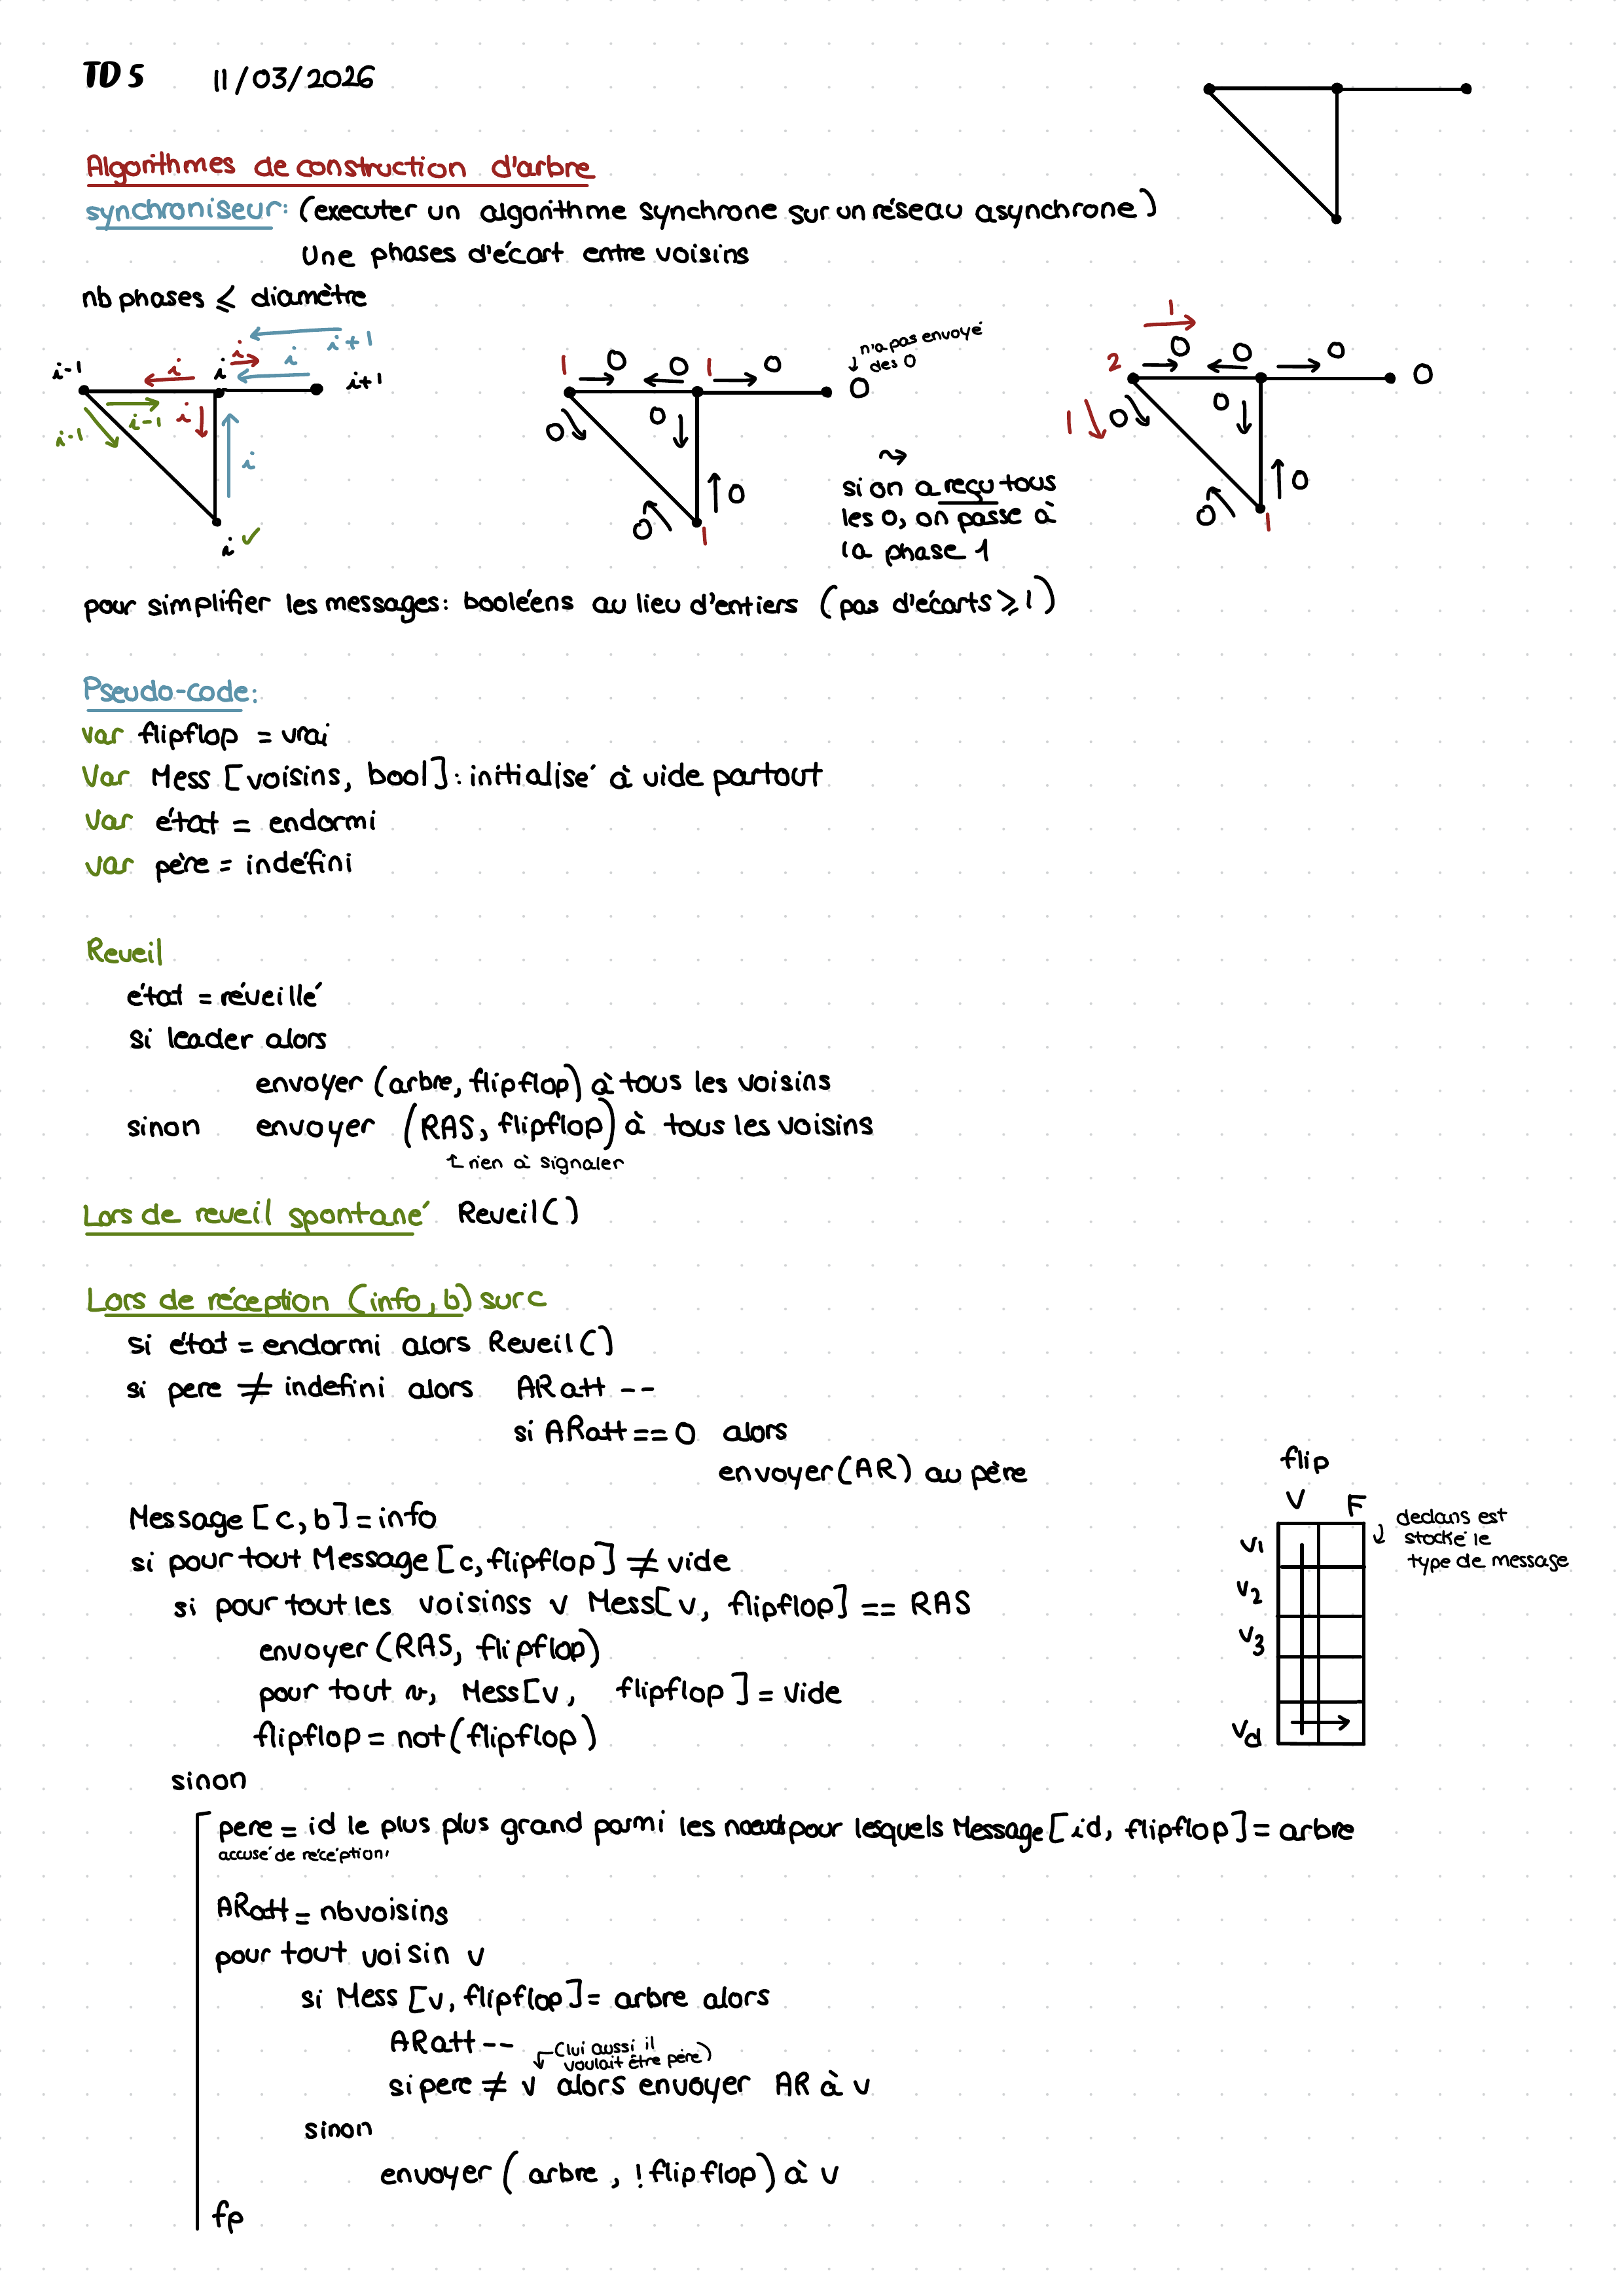 TD 5 11/03/2026
Algorithmes de construction d'arbre
synchroniseur: (executer un algorithme synchrone sur un réseau asynchrone)
Une phases d'écart entre voisins
nb phases ⩽ diamètre
i-1 i i i i i+1 i+1
i-1 i-1 i i
i
1 0 0 1 0 0
n'a pas envoyé
des 0
0 0 0 0 1
si on a reçu tous
les 0, on passe à
la phase 1
1
2 0 0 0 0
1 0 0 0 0 1
pour simplifier les messages: booléens au lieu d'entiers (pas d'écarts ⩾ 1)
Pseudo-code:
var flipflop = vrai
Var Mess [voisins, bool]: initialisé à vide partout
Var état = endormi
var père = indéfini
Reveil
état = réveillé
si leader alors
envoyer (arbre, flipflop) à tous les voisins
sinon envoyer (RAS, flipflop) à tous les voisins
rien à signaler
Lors de reveil spontané Reveil()
Lors de réception (info, b) sur c
si état = endormi alors Reveil()
si pere ≠ indefini alors ARatt --
si ARatt == 0 alors
envoyer(AR) au père
Message [c, b] = info
si pour tout Message [c, flipflop] ≠ vide
si pour tout les voisinss v Mess[v, flipflop] == RAS
envoyer (RAS, flipflop)
pour tout v, Mess[v, flipflop] = vide
flipflop = not(flipflop)
flip
V F
v1
v2
v3
vd
dedans est
stocké le
type de message
sinon
pere = id le plus plus grand parmi les nœuds pour lesquels Message [id, flipflop] = arbre
accusé de réception
ARatt = nbvoisins
pour tout voisin v
si Mess [v, flipflop] = arbre alors
ARatt --
(lui aussi il
voulait être père)
si pere ≠ v alors envoyer AR à v
sinon
envoyer (arbre, !flipflop) à v
fp